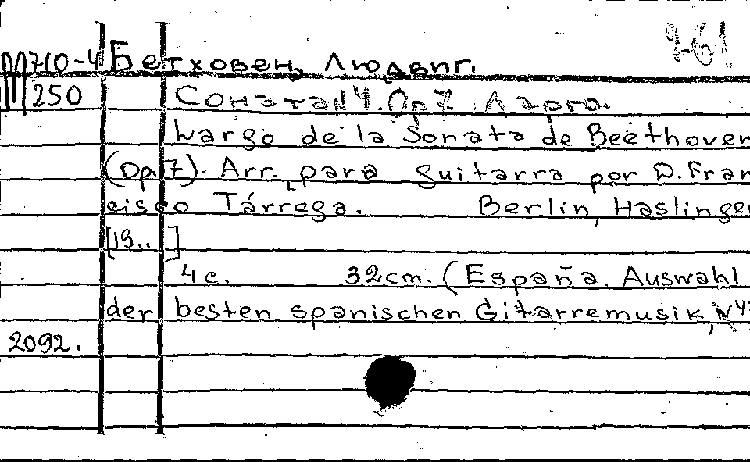 М 710-4 Бетховен, Людвиг.
250 Соната №4. Op 7. Ларго.
Largo de la Sonata de Beethoven
(Op 7). Arr. para guitarra por D. Fran
cisco Tárrega. Berlin, Haslinger
[19..]
4 с. 32cm. (España. Auswahl
der besten spanischen Gitarremusik, №4
2092.